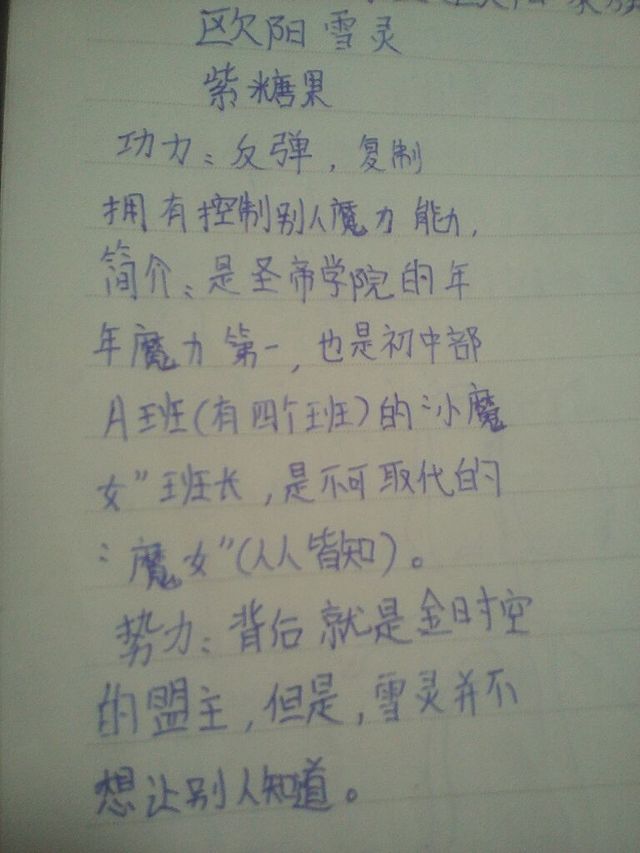 欧阳雪灵
紫糖果
功力：反弹，复制
拥有控制别人魔力能力，
简介：是圣帝学院的年
年魔力第一，也是初中部
A班(有四个班)的“小魔
女”班长，是不可取代的
“魔女”(人人皆知)。
势力：背后就是金时空
的盟主，但是，雪灵并不
想让别人知道。